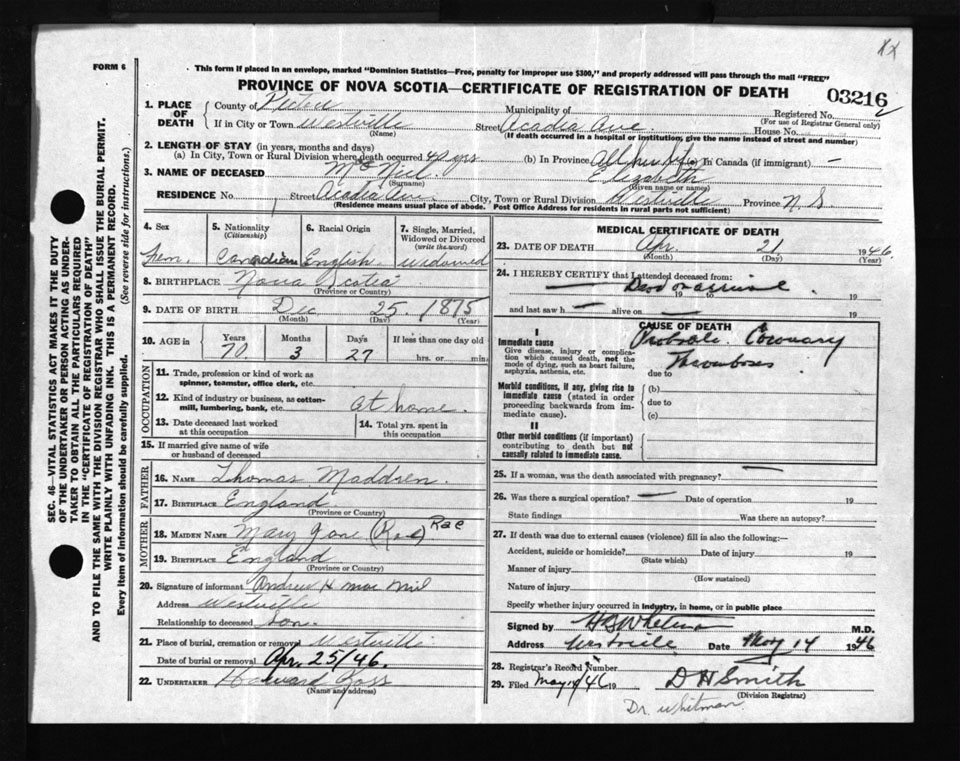 XX
FORM 6
This form if placed in an envelope, marked "Dominion Statistics—Free, penalty for improper use $300," and properly addressed will pass through the mail "FREE"
PROVINCE OF NOVA SCOTIA—CERTIFICATE OF REGISTRATION OF DEATH
03216
1. PLACE OF DEATH
County of Pictou
Municipality of
Registered No.
(Name)
(For use of Registrar General only)
If in City or Town Westville Street Acadia Ave. House No.
(If death occurred in a hospital or institution, give the name instead of street and number)
2. LENGTH OF STAY (in years, months and days)
(a) In City, Town or Rural Division where death occurred 40 yrs (b) In Province All her life (c) In Canada (if immigrant) —
3. NAME OF DECEASED McNeil Elizabeth
(Surname) (Given name or names)
RESIDENCE No. Street Acadia Ave City, Town or Rural Division Westville Province N. S.
(Residence means usual place of abode. Post Office Address for residents in rural parts not sufficient)
4. Sex
Fem.
5. Nationality
(Citizenship)
Canadian
6. Racial Origin
English.
7. Single, Married, Widowed or Divorced
(write the word)
widowed
8. BIRTHPLACE Nova Scotia
(Province or Country)
9. DATE OF BIRTH Dec 25. 1875
(Month) (Day) (Year)
10. AGE in Years Months Days If less than one day old
70 3 27 hrs. or min.
OCCUPATION
11. Trade, profession or kind of work as spinner, teamster, office clerk, etc.
12. Kind of industry or business, as cotton-mill, lumbering, bank, etc. at home.
13. Date deceased last worked at this occupation
14. Total yrs. spent in this occupation
15. If married give name of wife or husband of deceased
FATHER
16. NAME Thomas Maddren.
17. BIRTHPLACE England
(Province or Country)
MOTHER
18. MAIDEN NAME Mary Jane (Rae) Rae
19. BIRTHPLACE England
(Province or Country)
20. Signature of informant Andrew H mac
Address Westville
Relationship to deceased Son.
21. Place of burial, cremation or removal Westville
Date of burial or removal Apr. 25/46.
22. UNDERTAKER Howard Ross
(Name and address)
MEDICAL CERTIFICATE OF DEATH
23. DATE OF DEATH Apr. 21 1946.
(Month) (Day) (Year)
24. I HEREBY CERTIFY that I attended deceased from:
— Dead on arrival. 19
19 to 19
and last saw h — alive on — 19
CAUSE OF DEATH
I
Immediate cause
Give disease, injury or complication which caused death, not the mode of dying, such as heart failure, asphyxia, asthenia, etc.
Probable Coronary
Thrombosis
due to
Morbid conditions, if any, giving rise to immediate cause (stated in order proceeding backwards from immediate cause).
(b)
due to
(c)
II
Other morbid conditions (if important) contributing to death but not causally related to immediate cause.
25. If a woman, was the death associated with pregnancy? —
26. Was there a surgical operation? — Date of operation 19
State findings Was there an autopsy?
27. If death was due to external causes (violence) fill in also the following:—
Accident, suicide or homicide? Date of injury 19
(State which)
Manner of injury
(How sustained)
Nature of injury
Specify whether injury occurred in industry, in home, or in public place
Signed by M.D.
Address Westville Date May 14 1946
28. Registrar's Record Number
29. Filed May 46 19 D H Smith
(Division Registrar)
Dr. Whitman.
SEC. 46—VITAL STATISTICS ACT MAKES IT THE DUTY
OF THE UNDERTAKER OR PERSON ACTING AS UNDERTAKER TO OBTAIN ALL THE PARTICULARS REQUIRED
IN THE "CERTIFICATE OF REGISTRATION OF DEATH"
AND TO FILE THE SAME WITH THE DIVISION REGISTRAR WHO SHALL ISSUE THE BURIAL PERMIT.
WRITE PLAINLY WITH UNFADING INK. THIS IS A PERMANENT RECORD.
Every item of information should be carefully supplied. (See reverse side for instructions.)